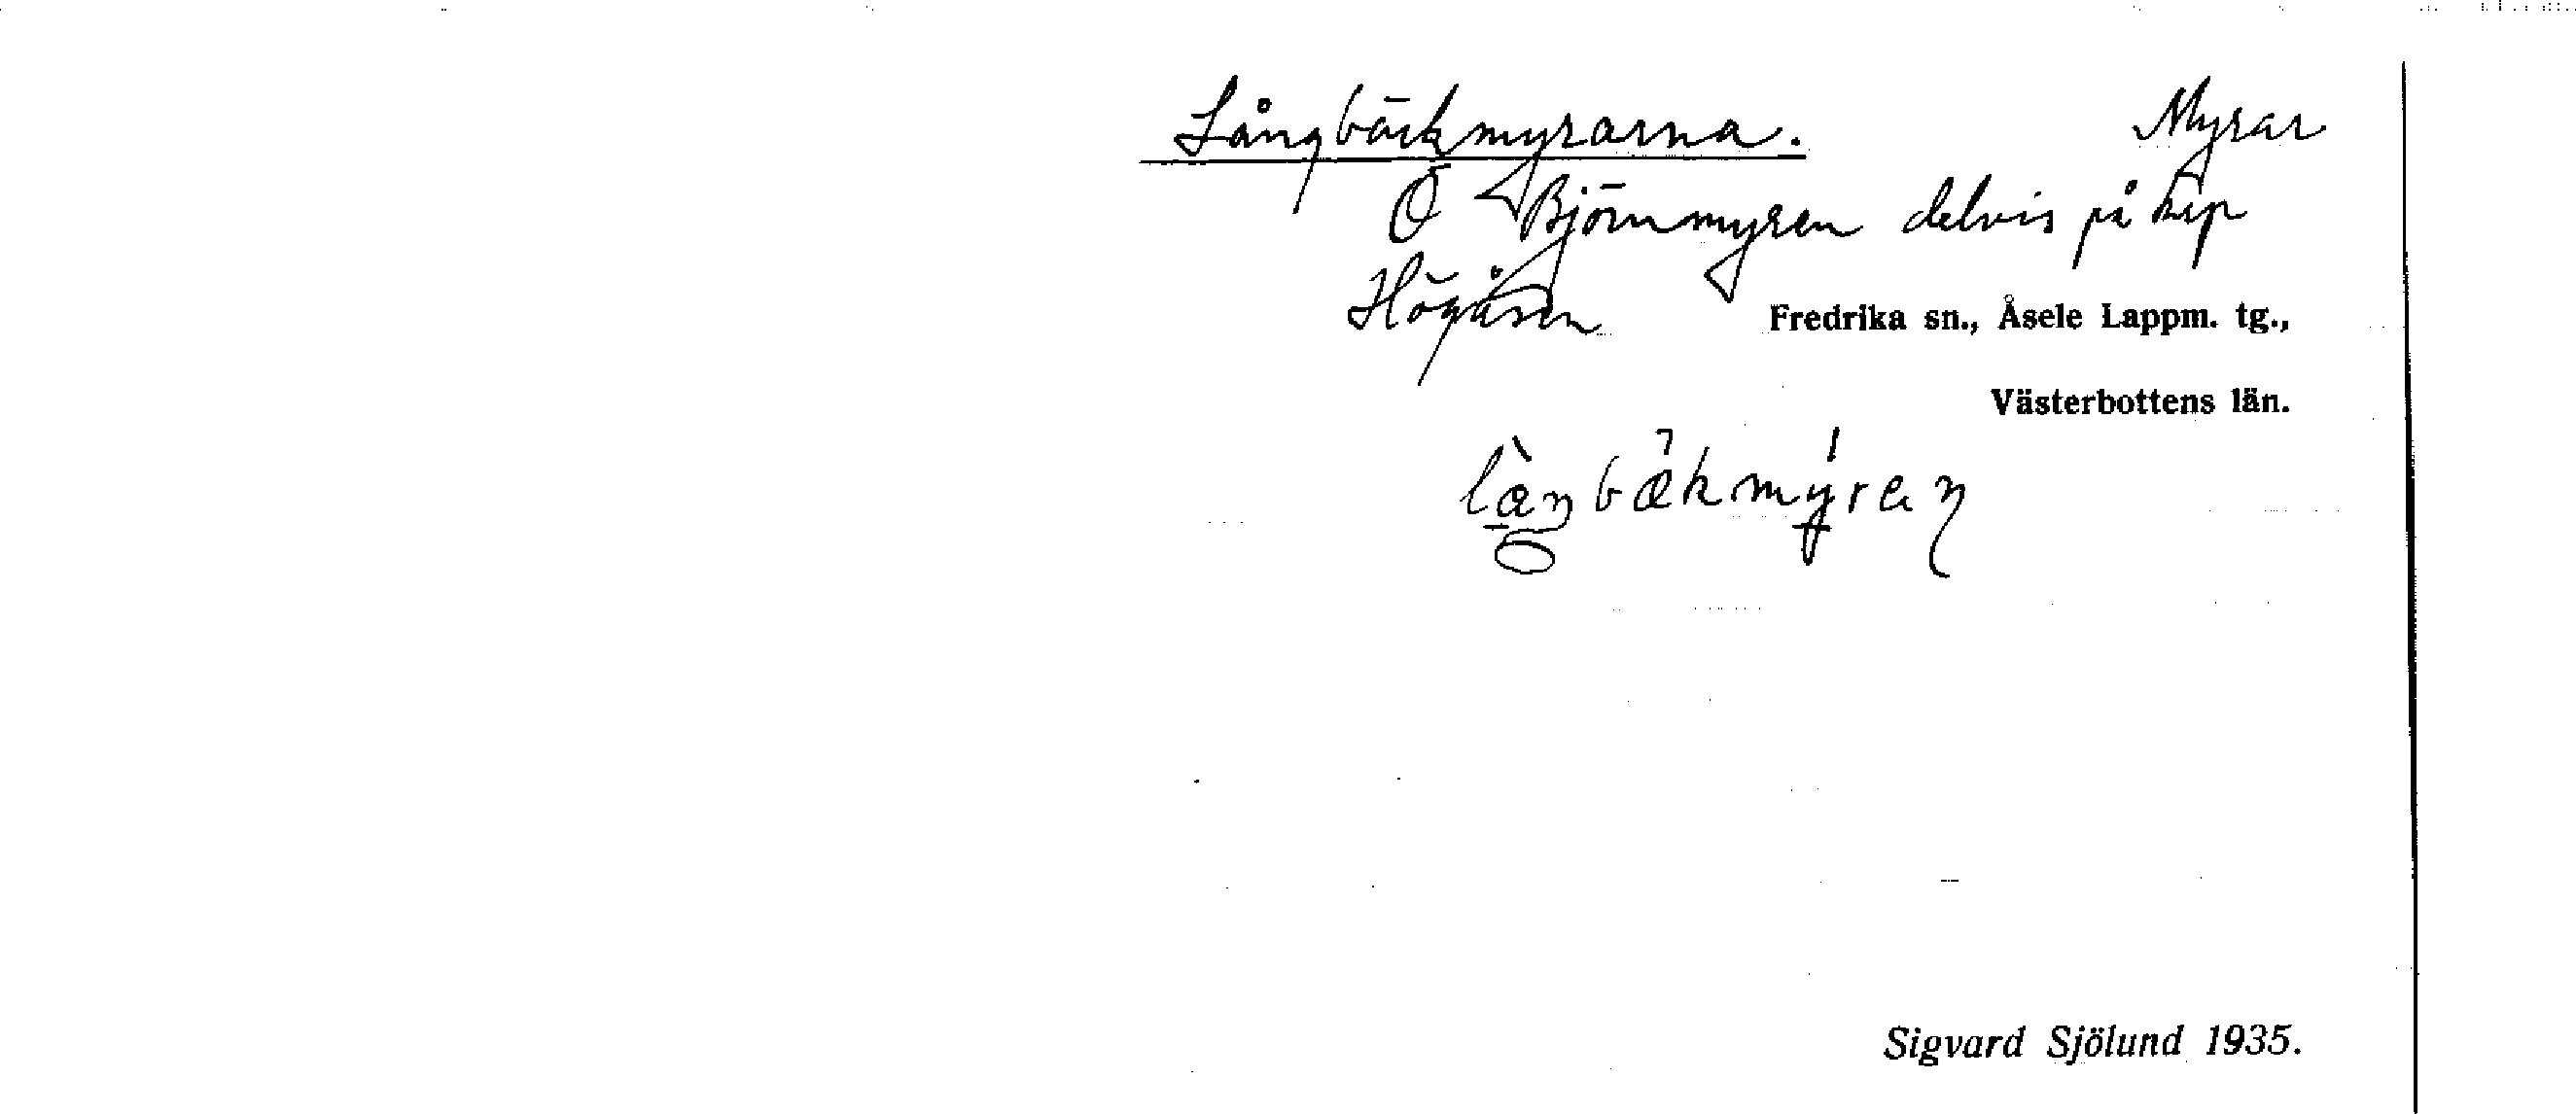 Långbäckmyrarna. Myrar
Ö Björnmyren delvis på krp
Högåsen
Fredrika sn., Åsele Lappm. tg.,
Västerbottens län.
Sigvard Sjölund 1935.